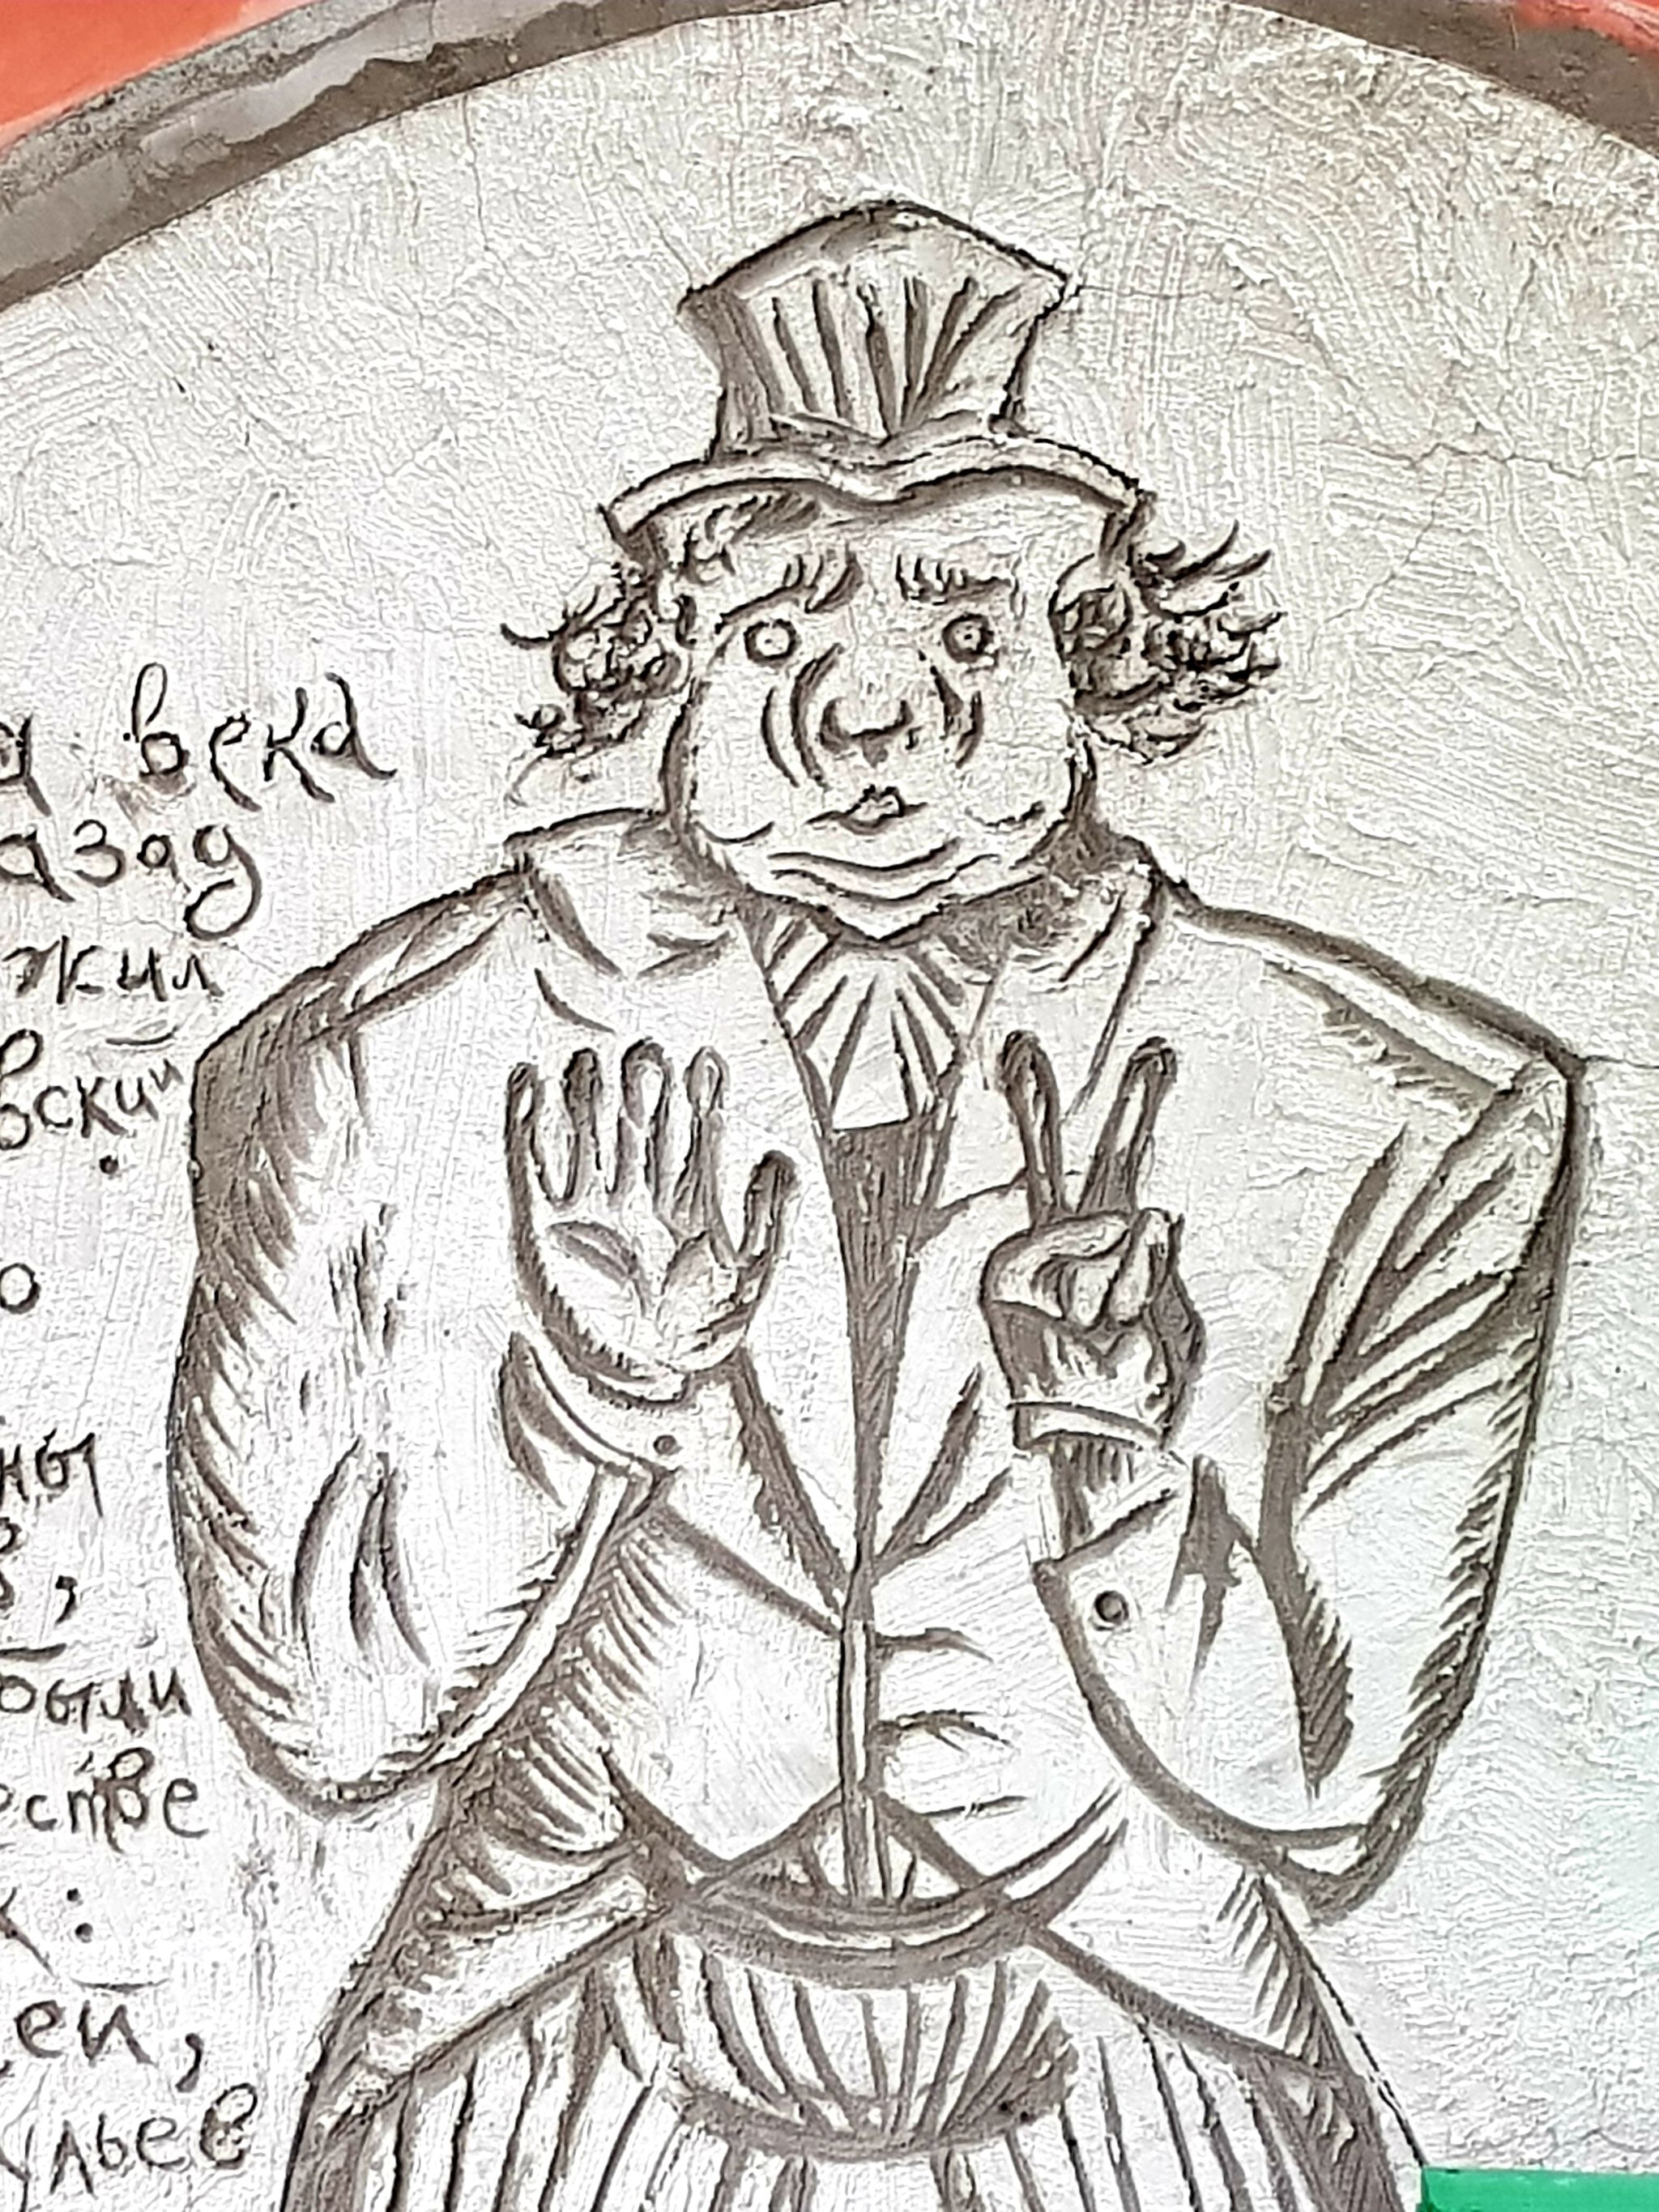 а века
азад
жил
вский
.
о
ны
в,
были
естве
х:
ей,
ульев